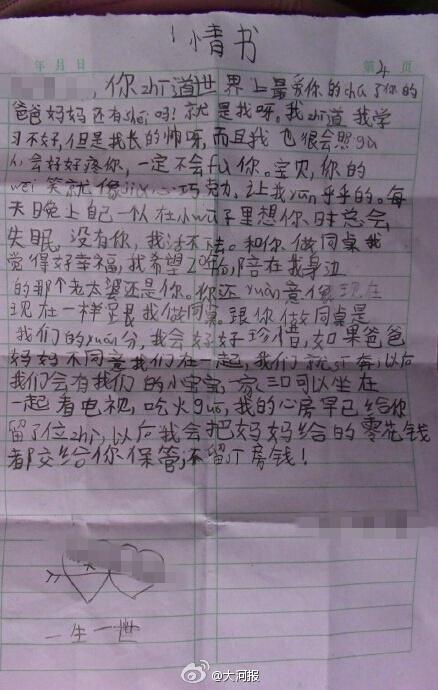 情书
年 月 日 第4页
,你zhī道世界上最爱你的chú了你的
爸爸妈妈还有sheí吗!就是我呀。我zhī道我学
习不好,但是我长的帅呀,而且我也很会照gù
人,会好好疼你,一定不会fù你。宝贝,你的
wēi笑就像巧克力,让我yūn乎乎的。每
天晚上自己一人在小wū子里想你,总会
失眠,没有你,我活不。和你做同桌我
觉得好幸福,我希望20年后,陪在我身边
的那个老太婆还是你。你还yuàn意像现在
现在一样跟我做同桌。跟你做同桌是
我们的yuán分,我会好好珍惜,如果爸爸
妈妈不同意我们在一起,我们就奔,以后
我们会有我们的小宝宝,一家三口可以坐在
一起看电视,吃火guō,我的心房早已给你
留了位zhì,以后我会把妈妈给的零花钱
都交给你保管,不留房钱!
一生一世
@大河报